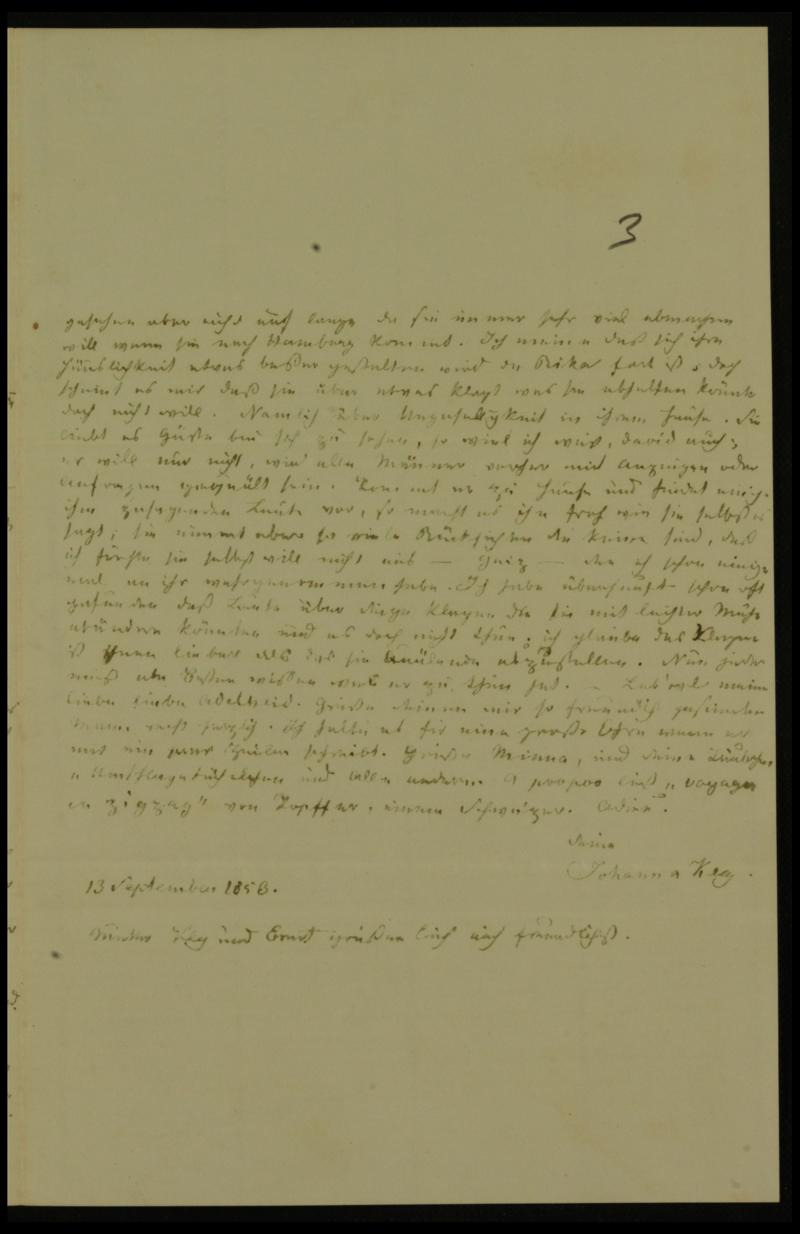 3
gesehen aber nicht auf lange da sie immer sehr viel abmachen
will wenn sie nach Hamburg kommt. Ich meine daß sich ihre
Häuslichkeit etwas besser gestalten wird da Rika fort ist, doch
scheint es mir daß sie über etwas klagt was sie abhelfen könnte
doch nicht will. Namlich über Ungeselligkeit in ihrem Hause. Sie
liebt es Gäste bei sich zu sehen, so viel ich weis, David auch;
er will nur nicht, wie alle Männer vorher mit Anzeigen oder
Anfragen gequält sein. Kommt er zu Hause und findet einige
ihm zusagenden Leute vor, so macht es ihn froh wie sie selbst es
sagt; sie nimmt aber so viele Rücksichten die keine sind, daß
ich fürchte sie selbst will nicht aus — Geiz — den ich schon einige
mal an ihr wahrgenommen habe. Ich habe überhaupt schon oft
gefunden daß Leute über Dinge klagen die sie mit leichter Mühe
abändern könnten und es doch nicht thun; ich glaube das Klagen
ist ihnen lieber als das sie abzustellen. Nun jeder
muß am Besten wissen was er zu thun hat. — Leb' wol meine
liebe liebe Adelheid. Grüße deinen mir so freundlich gesinnten
Mann recht herzlich. Ich halte es für eine große Ehre wenn er
mir ein paar Zeilen schreibt. Grüße Minna, und deine
und alle andern. A propos ließ „voyages
en zigzag" von Töpffer, einem Schweizer. Adieu.
Deine
Johanna Key.
13 September 1853.
Key und Ernst grüßen Euch auch freundlichst.